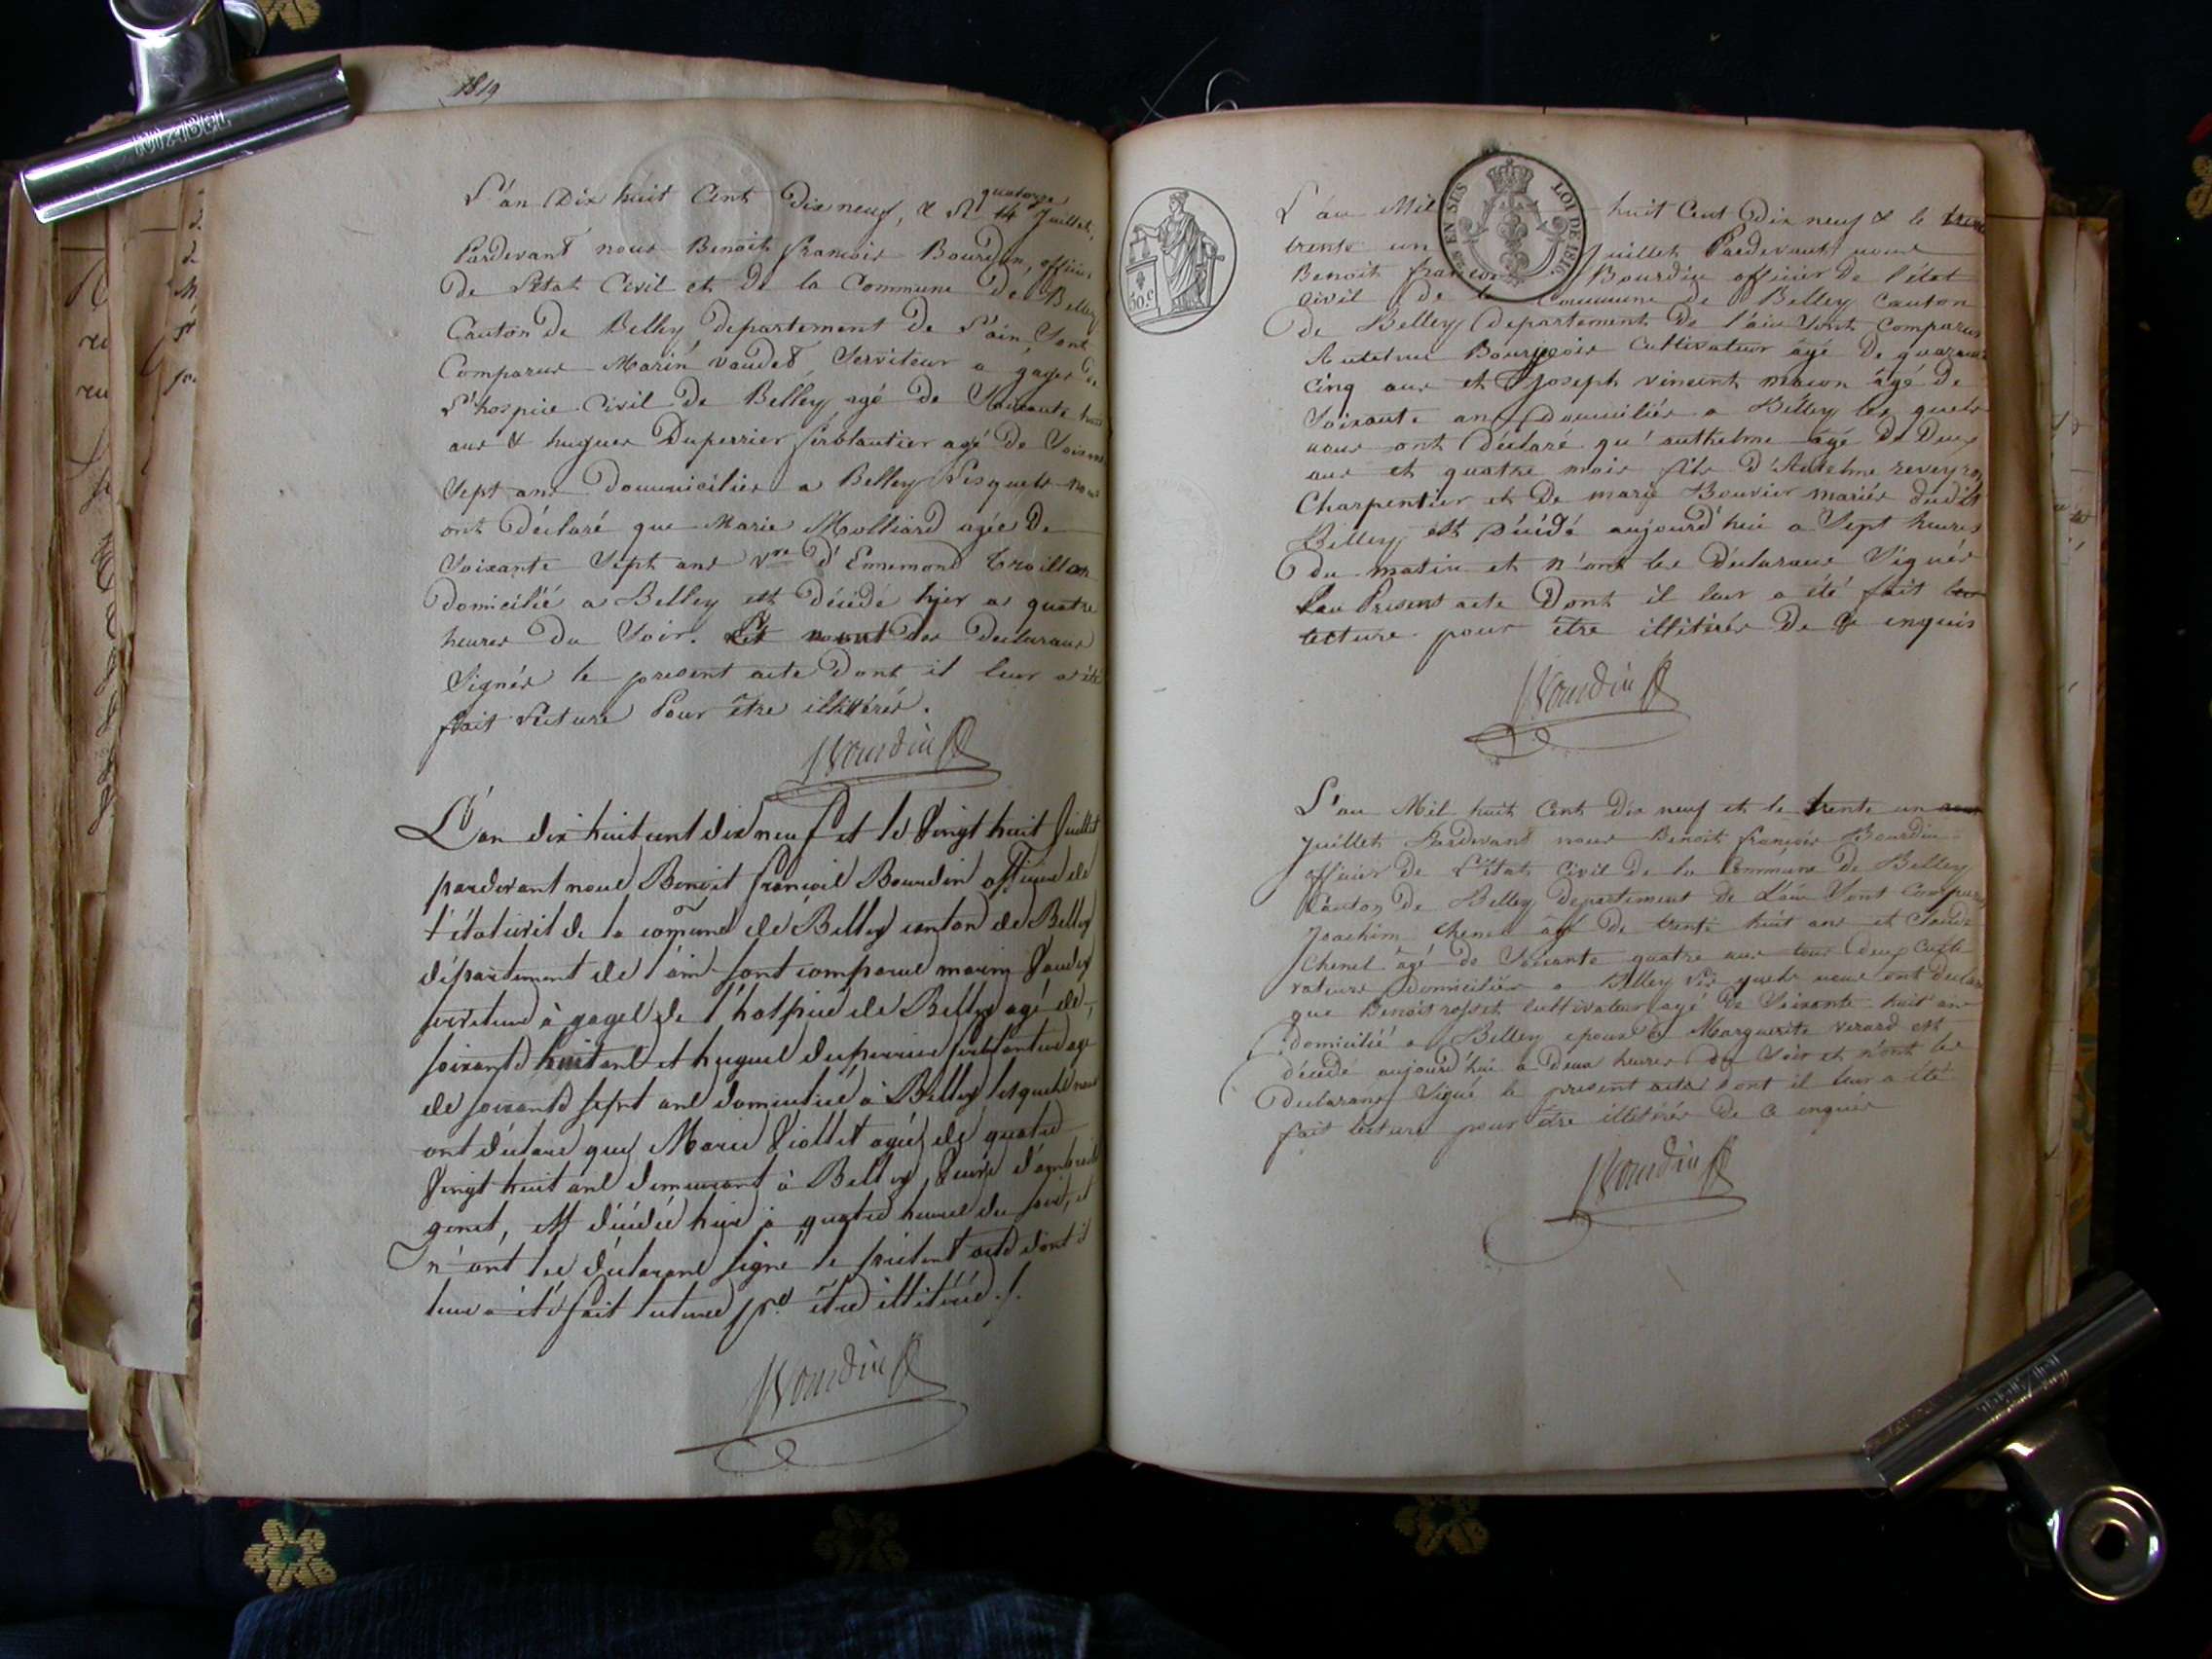 1819
L'an Dix huit Cent Dix neuf, & le 14 Juillet,
quatorze
Pardevant nous Benoit françois Bourdin, officier
De l'état Civil et De la Commune De Belley
Canton De Belley, Departement De l'ain, Sont
Comparus Marin vaudet, Serviteur a gages De
L'hospice Civil De Belley agé De Soixante huit
ans & hugues Duperrier ferblantier agé De Soixante
Sept ans Domiciliés a Belley Lesquels nous
ont Déclaré que Marie Molliard agée De
Soixante Sept ans Vve D'Ennemond
Domicilié a Belley est Décédé hier a quatre
heures Du Soir. Et n'ont les Declarans
Signés le present acte Dont il leur a été
fait Lecture Pour être illitérés.
Bourdin
L'an dix huit cent dix neuf et le Vingt huit Juillet
pardevant nous Benoit françois Bourdin officier de
l'état civil de la comune de Belley canton de Belley
département de l'ain sont comparus marin Vaudet
serviteur à gages de l'hospice de Belley agé de
soixante huit ans et hugues duperrier ferblantier agé
de soixante sept ans domiciliés à Belley lesquels nous
ont déclaré que Marie Viollet agée de quatre
Vingt huit ans demeurant à Belley, Veuve d'
genet, est décédée hier à quatre heures du soir, et
n'ont les déclarans signé le présent acte dont il
leur a été fait lecture pr. être illitérés./.
Bourdin
50.c
25.C EN SUS LOI DE 1816.
L'an Mil huit Cent Dix neuf & le
trente un Juillet Pardevant nous
Benoit françois Bourdin officier De l'état
Civil De la Commune De Belley Canton
De Belley Departement De l'ain Sont Comparus
Antelme Bourgeois Cultivateur âgé De quarante
cinq ans et Joseph vincent maçon âgé De
Soixante ans Domiciliés a Belley les quels
nous ont Déclaré qu'anthelme âgé De Deux
ans et quatre mois fils D'Antelme reveyron
Charpentier et De marie Bouvier mariés dudit
Belley est Décédé aujourd'hui a Sept heures
Du matin et n'ont les Déclarans Signés
Le Present acte Dont il leur a été fait
lecture pour être illitérés De ce enquis
Bourdin
L'an Mil huit Cent Dix neuf et le trente un
Juillet Pardevant nous Benoit françois Bourdin
officier De L'état Civil De la Commune De Belley
Canton De Belley Departement De L'ain Sont Comparus
Joachim Chenel âgé De trente huit ans et Claude
Chenel âgé De Soixante quatre ans tous Deux Culti
vateurs Domiciliés a Belley Les quels nous ont Declaré
que Benoit rosset Cultivateur agé De Soixante huit ans
Domicilié a Belley epoux De Marguerite verard est
décédé aujourd'hui a Deux heures Du Soir et n'ont les
Declarans Signé le present acte Dont il leur a été
fait lecture pour être illitérés De Ce enquis
Bourdin